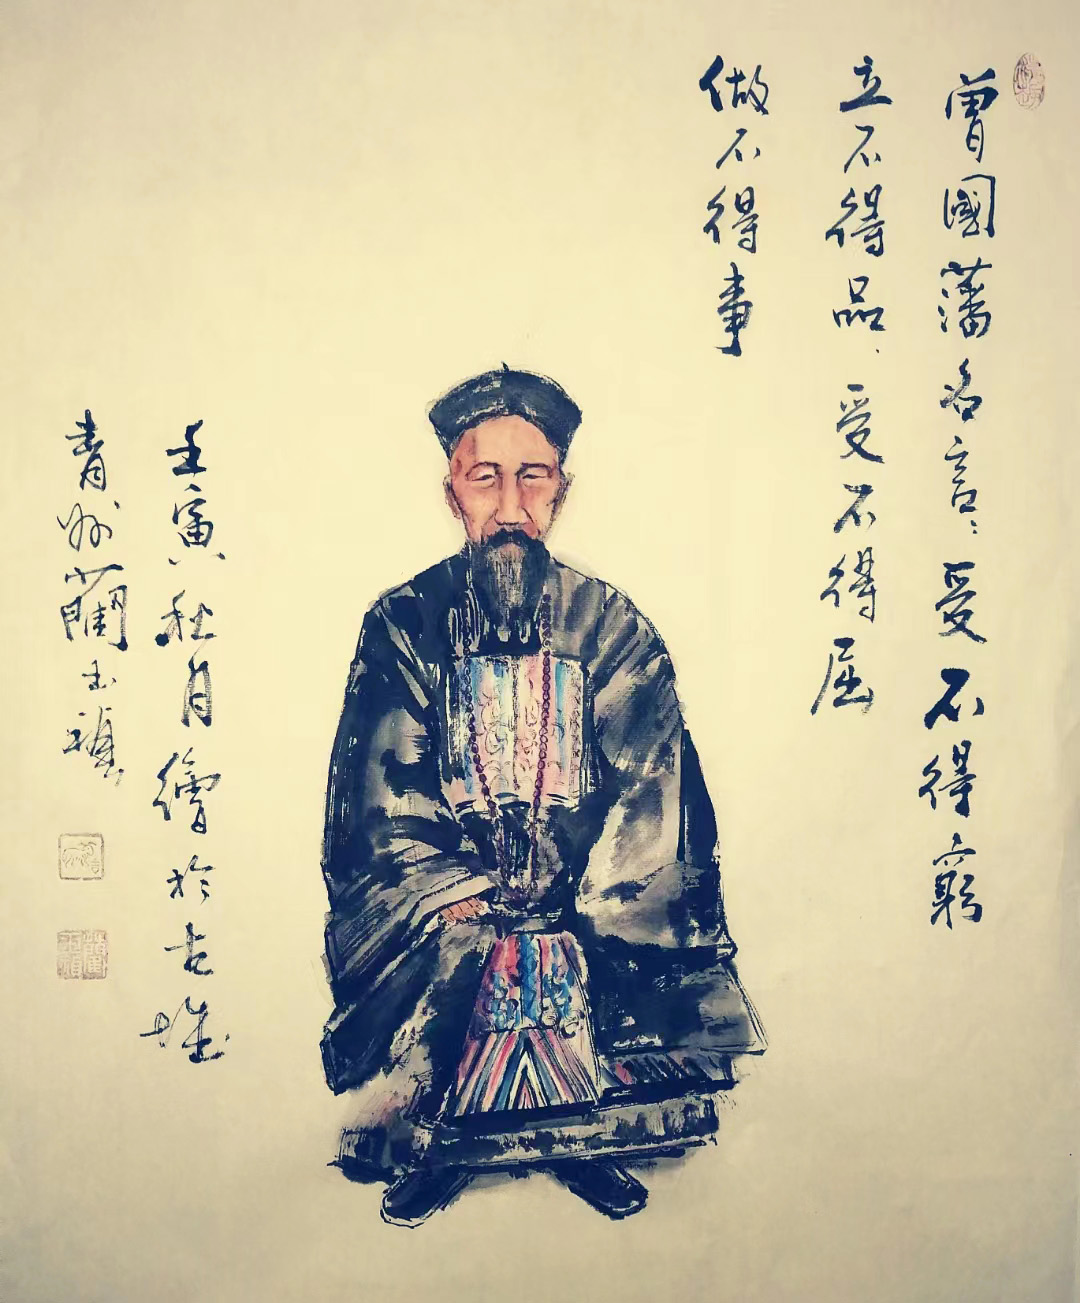 曾國藩名言：受不得窮
立不得品，受不得屈
做不得事
壬寅秋月繪於古
青州藺玉禎